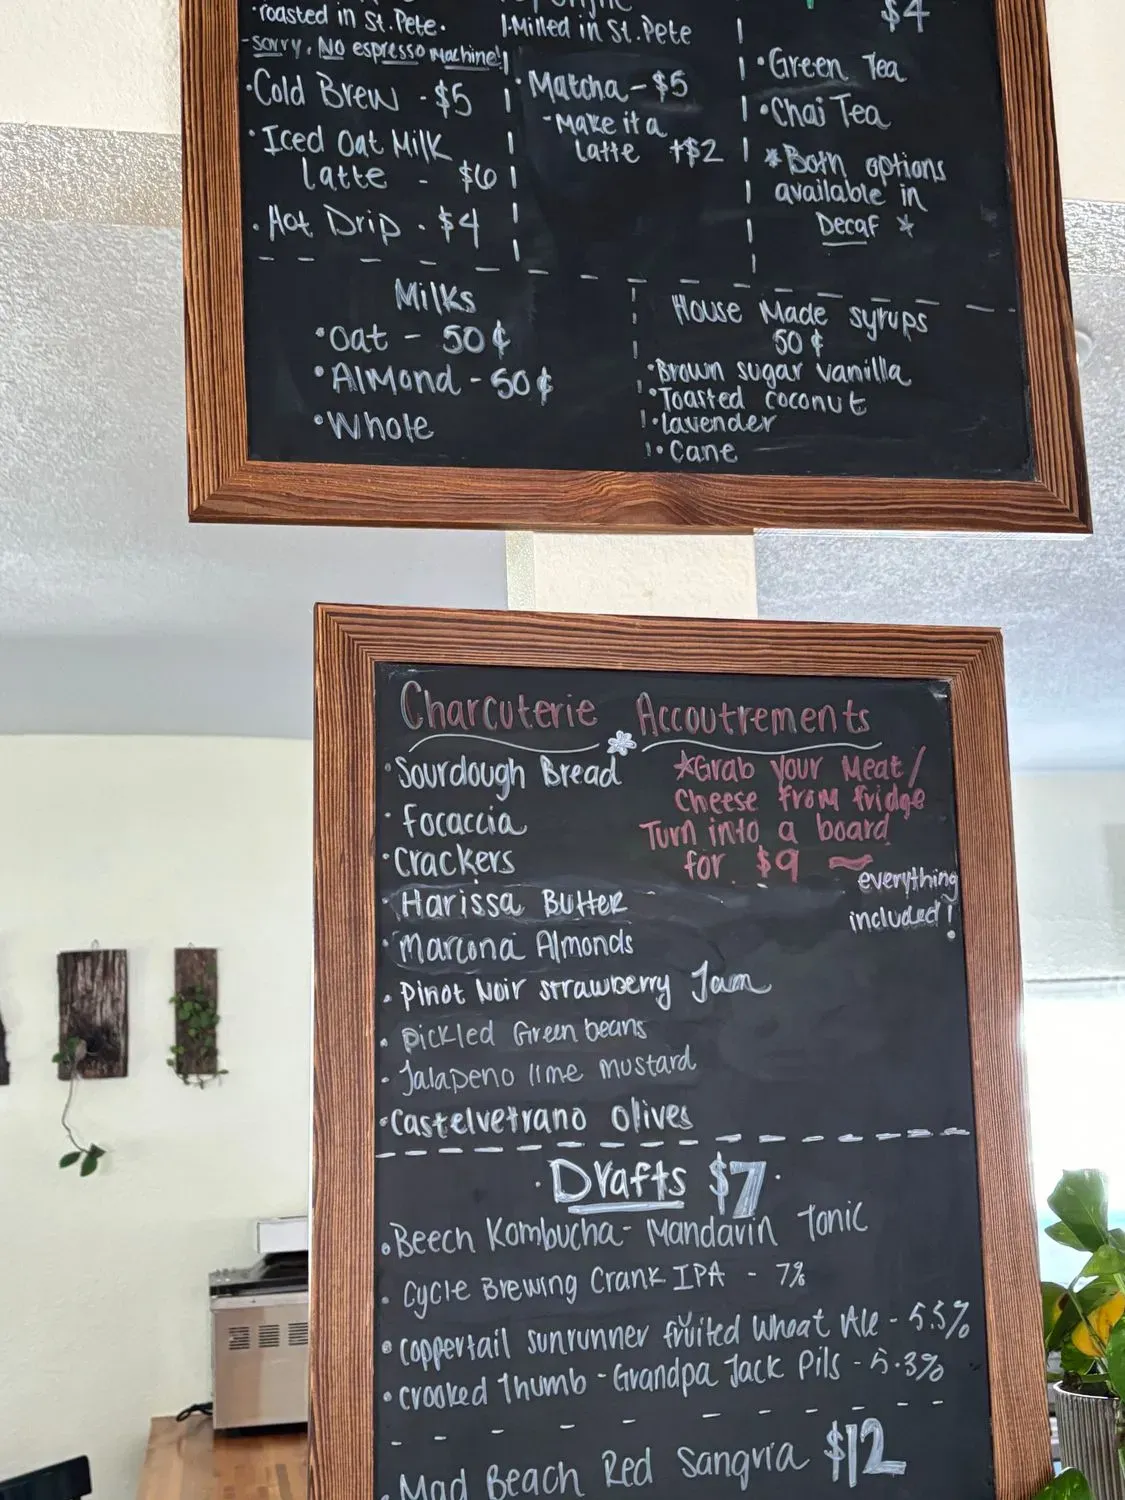 •roasted in St. Pete•
-sorry, No espresso Machine!
•Cold Brew - $5
•Iced Oat Milk
Latte - $6
•Hot Drip - $4
•Milled in St. Pete
•Matcha - $5
-Make it a
latte +$2
$4
•Green Tea
•Chai Tea
*Both options
available in
Decaf *
Milks
•Oat - 50¢
•Almond - 50¢
•Whole
House Made syrups
50¢
•Brown sugar vanilla
•Toasted coconut
•Lavender
•Cane
Charcuterie Accoutrements
•Sourdough Bread
•Focaccia
•Crackers
•Harissa Butter
•Marcona Almonds
•Pinot Noir strawberry Jam
•Pickled Green beans
•Jalapeno lime mustard
•Castelvetrano Olives
*Grab your Meat/
Cheese from fridge
Turn into a board
for $9 ~
everything
included!
•Drafts $7•
•Beech Kombucha - Mandarin Tonic
•Cycle Brewing Crank IPA - 7%
•Coppertail sunrunner fruited Wheat Ale - 5.5%
•Crooked Thumb - Grandpa Jack Pils - 5.3%
•Mad Beach Red Sangria $12